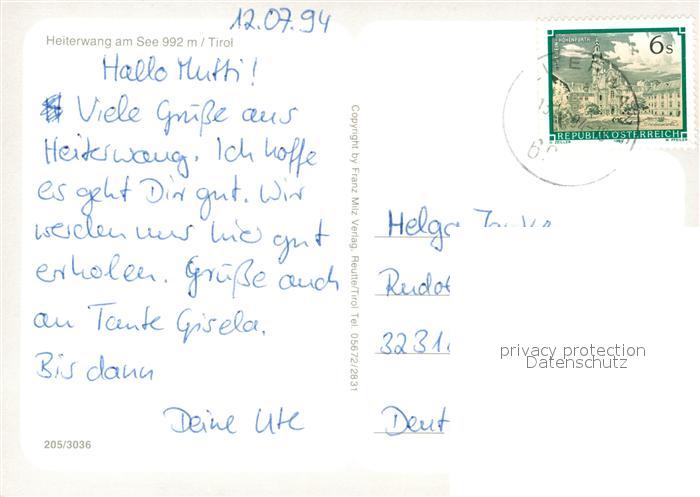 12.07.94
Heiterwang am See 992 m / Tirol
Hallo Mutti!
Viele Grüße aus
Heiterwang. Ich hoffe
es geht Dir gut. Wir
werden uns hier gut
erholen. Grüße auch
an Tante Gisela.
Bis dann
Deine Ute
205/3036
Copyright by Franz Milz Verlag, Reutte/Tirol Tel. 05672/2831
6s
REPUBLIK ÖSTERREICH
Helga
privacy protection
Datenschutz